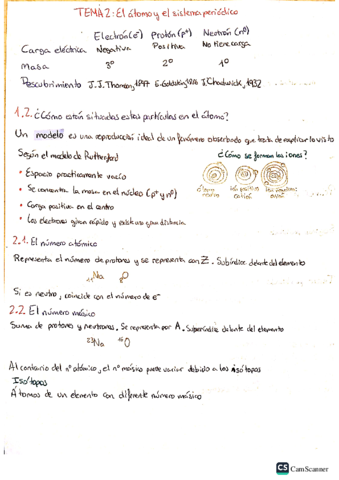 TEMA 2: El átomo y el sistema periódico
Electrón(e⁻) Protón(p⁺) Neutrón(nº)
Carga eléctrica Negativa Positiva No tiene carga
Masa 3º 2º 1º
Descubrimiento J.J. Thomson, E. Goldstein, J. Chadwick, 1932
1.2. ¿Cómo están situadas estas partículas en el átomo?
Un modelo es una reproducción ideal de un fenómeno observando que trata de explicar lo visto
Según el modelo de Rutherford ¿Cómo se forman los iones?
• Espacio practicamente vacío
• Se concentra la masa en el núcleo (p⁺ y nº)
átomo ion positivo ion negativo
neutro catión anión
• Carga positiva en el centro
• Los electrones giran rápido y a gran distancia
2.1. El número atómico
Representa el número de protones y se representa con Z. Subíndice delante del elemento
₁₁Na ₈O
Si es neutro, coincide con el número de e⁻
2.2. El número másico
Suma de protones y neutrones. Se representa por A. Superíndice delante del elemento
²³Na ¹⁶O
Al contrario del nº atómico, el nº másico puede variar debido a los isótopos
Isótopos
Átomos de un elemento con diferente número másico
CS CamScanner